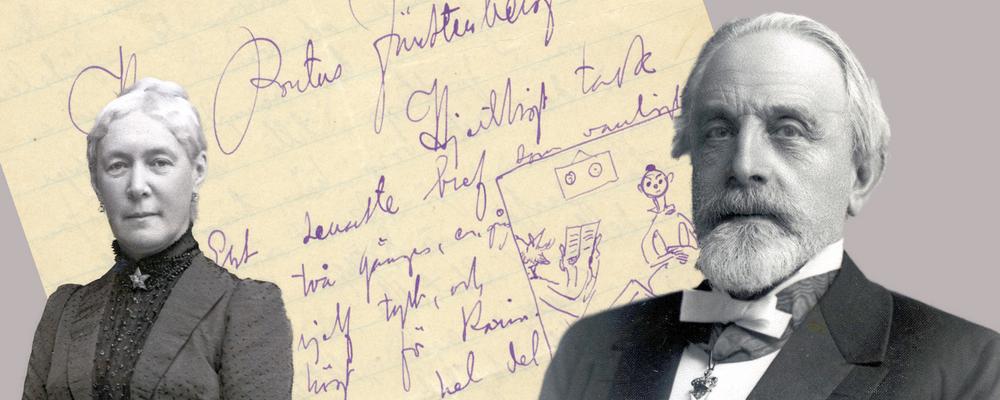 Pontus Fürstenberg
Hjertligt tack
Ert senaste bref som vanligt
två gånger, en
sjelf tyst, och
högt för Karin.
hel del